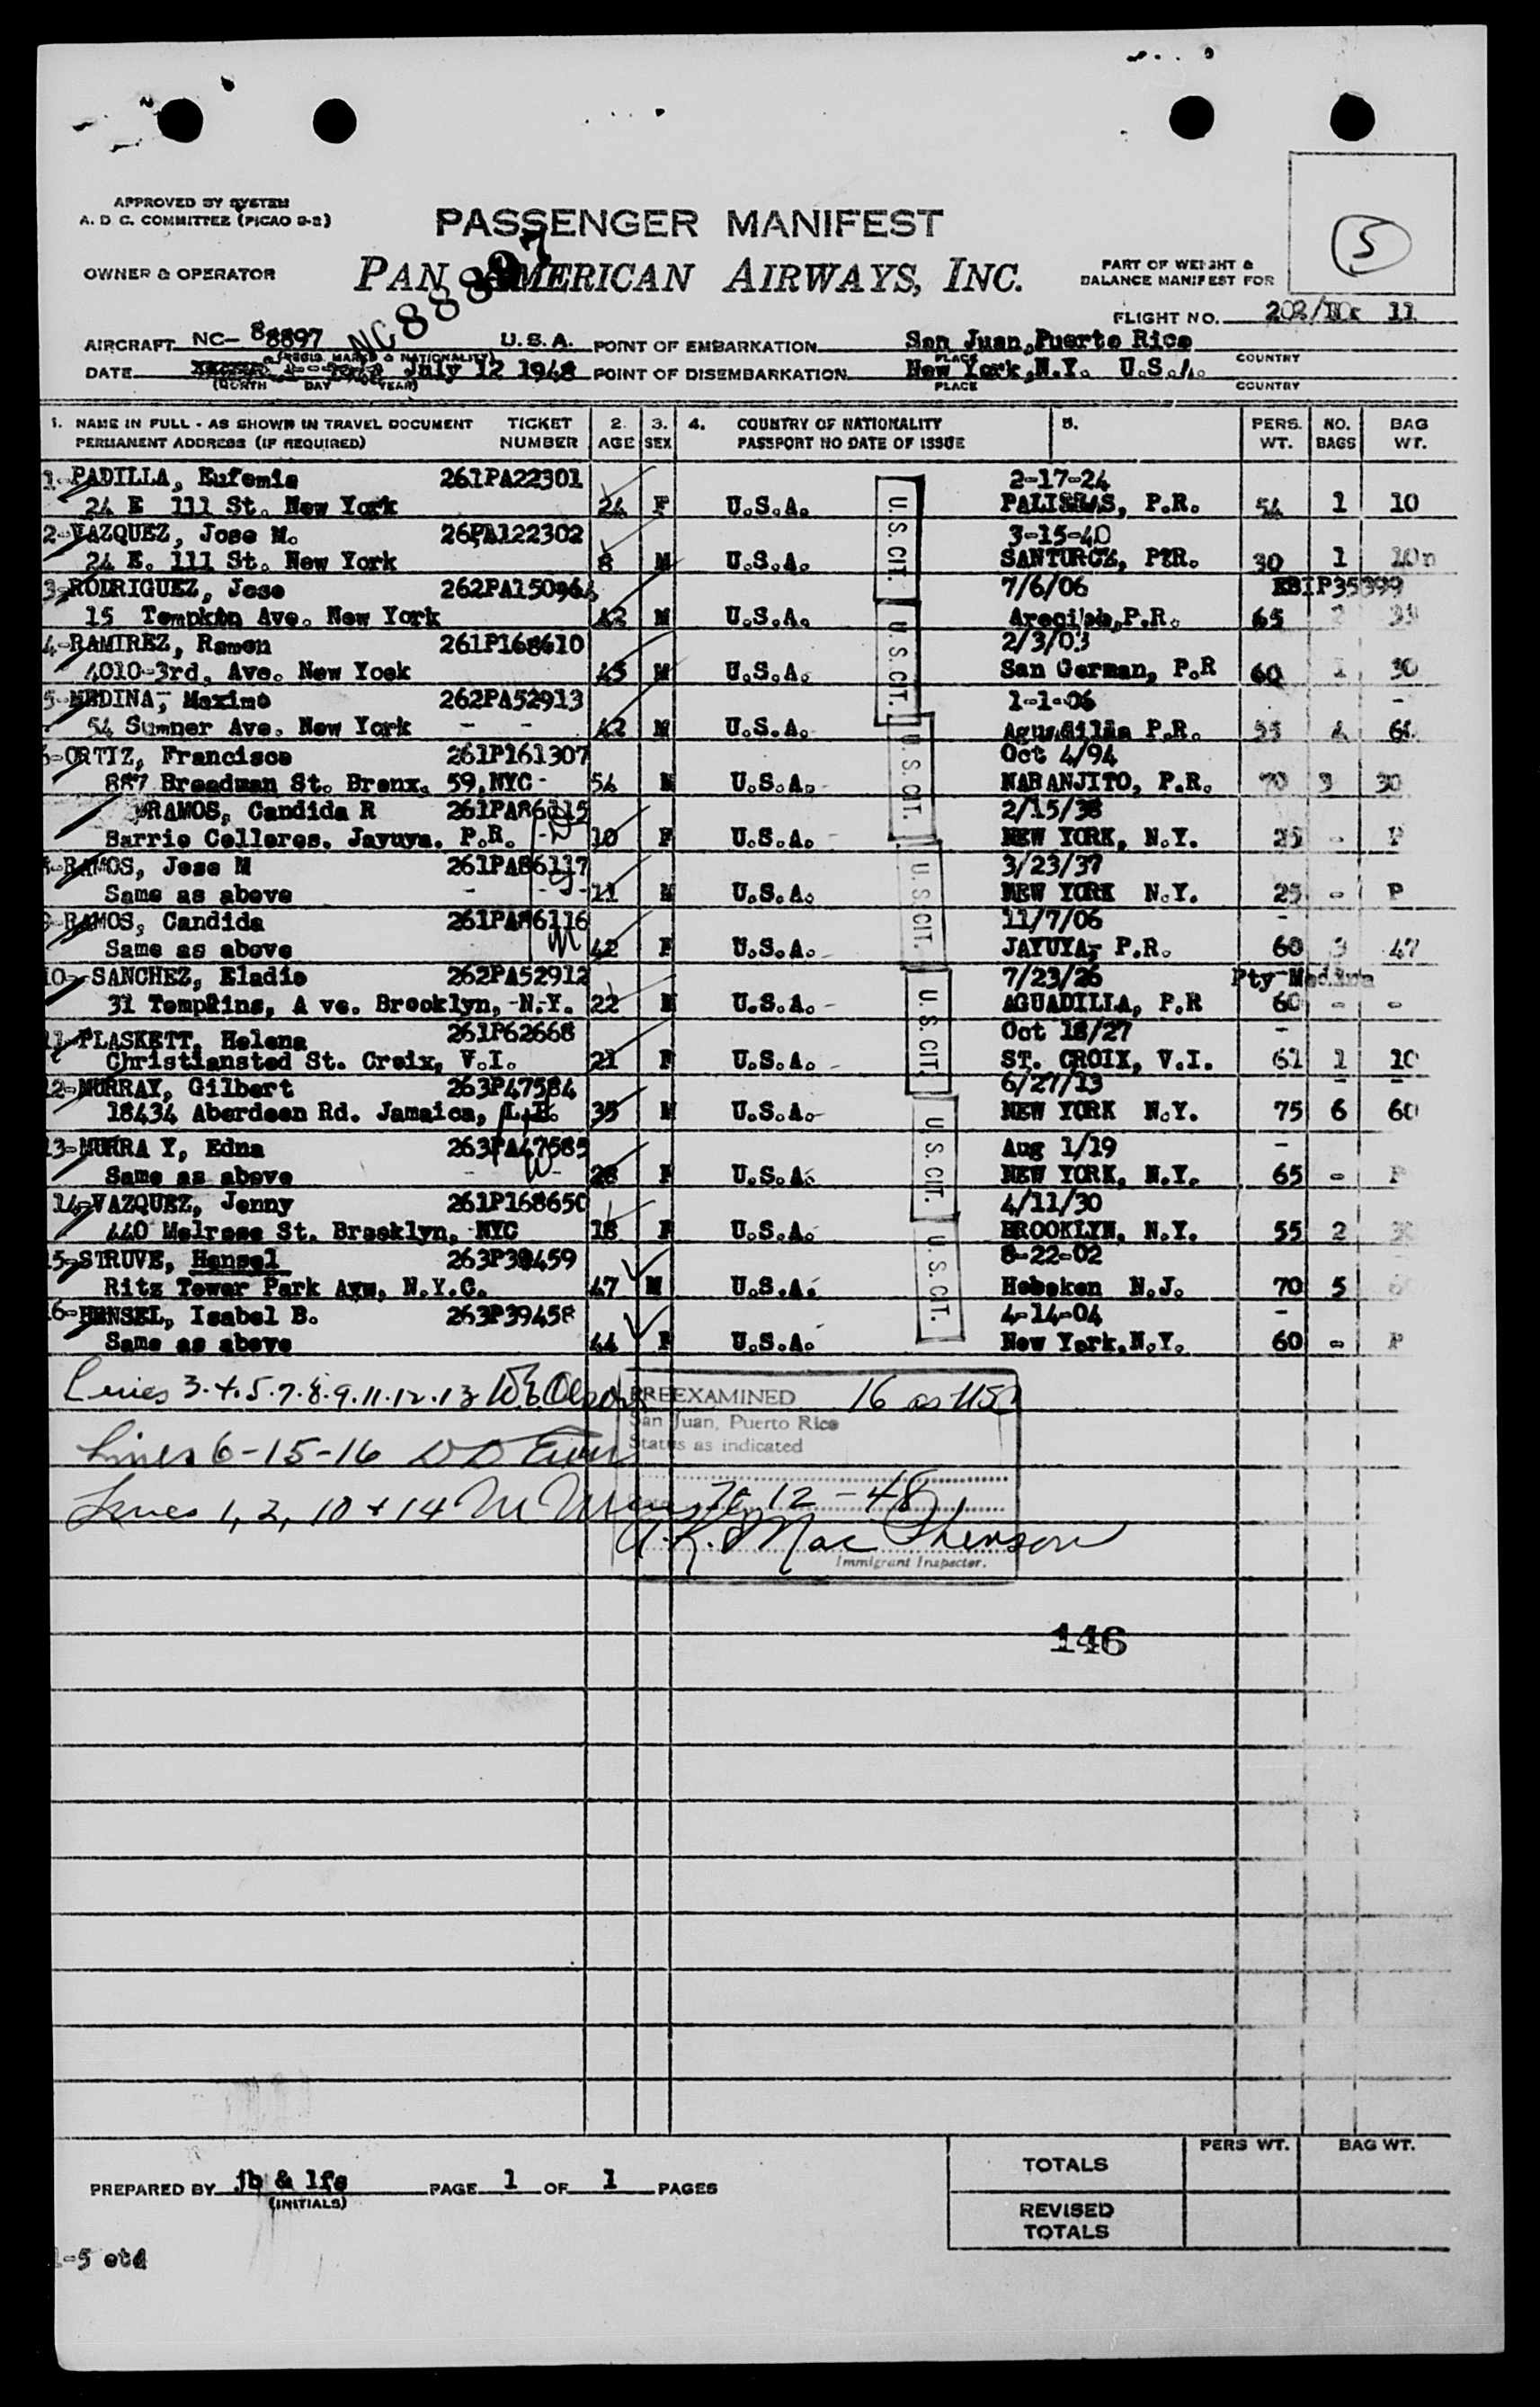 APPROVED BY SYSTEM
A. D C. COMMITTEE (PICAO 9-2)
PASSENGER MANIFEST
5
OWNER & OPERATOR
PAN AMERICAN AIRWAYS, INC.
NC88897
PART OF WEIGHT &
BALANCE MANIFEST FOR
FLIGHT NO. 11
AIRCRAFT NC- 88897 U.S.A. POINT OF EMBARKATION San Juan,Puerto Rico
(REGIS. MARKS & NATIONALITY) PLACE COUNTRY
DATE July 12 1948 POINT OF DISEMBARKATION New York,N.Y. U.S.A.
(MONTH DAY YEAR) PLACE COUNTRY
1. NAME IN FULL - AS SHOWN IN TRAVEL DOCUMENT TICKET 2. 3. 4. COUNTRY OF NATIONALITY 5. PERS. NO. BAG
PERMANENT ADDRESS (IF REQUIRED) NUMBER AGE SEX PASSPORT NO DATE OF ISSUE WT. BAGS WT.
1-PADILLA, Eufemia 261PA22301 2-17-24
24 E 111 St. New York 24 F U.S.A. P.R. 54 1 10
2-VAZQUEZ, Jose M. 26PA122302 3-15-40
24 E. 111 St. New York 8 M U.S.A. SANTURCE, 30 1
3-RODRIGUEZ, Jose 7/6/06
15 Ave. New York 42 M U.S.A. P.R. 65
4-RAMIREZ, Ramon 261P168610 2/3/03
4010-3rd, Ave. New Yook 45 M U.S.A. San German, P.R 60 1 30
5-MEDINA, Maximo 262PA52913 1-1-06
54 Sumner Ave. New York - - 42 M U.S.A. P.R. 55 4
6-ORTIZ, Francisco 261P161307 Oct 4/94
887 St. Bronx. 59,NYC- 54 M U.S.A. NARANJITO, P.R. 70 3 30
RAMOS, Candida R 261PA86115 2/15/38
Barrio Colleres, Jayuya. P.R. 10 F U.S.A. NEW YORK, N.Y. 25 - P
8-RAMOS, Jose M 261PA86117 3/23/37
Same as above 11 M U.S.A. NEW YORK N.Y. 25 - P
9-RAMOS, Candida 261PA86116 11/7/06
Same as above 42 F U.S.A. JAYUYA, P.R. 60 3 47
10- SANCHEZ, Eladio 262PA52912 7/23/26 Pty-Medina
31 Tompkins, A ve. Brooklyn, -N.Y. 22 M U.S.A. AGUADILLA, P.R 60 - -
11-PLASKETT, Helena 261P62668 Oct 18/27
Christiansted St. Croix, V.I. 21 F U.S.A. ST. CROIX, V.I. 61 1 10
12-MURRAY, Gilbert 263P47584 6/27/13
18434 Aberdeen Rd. Jamaica, L.I. 35 M U.S.A. NEW YORK N.Y. 75 6 60
13-MURRA Y, Edna 263PA47585 Aug 1/19
Same as above 28 F U.S.A. NEW YORK, N.Y. 65 - P
14-VAZQUEZ, Jenny 261P168650 4/11/30
440 Melrose St. Brooklyn, -NYC 18 F U.S.A. BROOKLYN, N.Y. 55 2
15-STRUVE, Hensel 8-22-02
Ritz Tower Park N.Y.C. 47 M U.S.A. Hoboken N.J. 70 5
16-HENSEL, Isabel B. 263P39458 4-14-04
Same as above 44 F U.S.A. New York,N.Y. 60 - P
U.S. CIT.
U.S. CIT.
U.S. CIT.
U.S. CIT.
U.S. CIT.
U.S. CIT.
U.S. CIT.
Lines 3.4.5.7.8.9.11.12.13
PREEXAMINED 16 as USC
San Juan, Puerto Rico
Status as indicated
Lines 6-15-16
Lines 1, 2, 10 + 14
12-48
A.R. MacPherson
Immigrant Inspector.
146
PERS WT. BAG WT.
TOTALS
PREPARED BY jb & lfs PAGE 1 OF 1 PAGES
(INITIALS)
REVISED
TOTALS